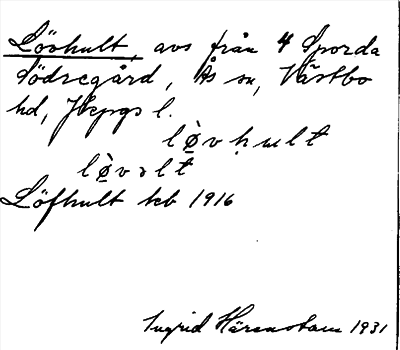 Lövhult, avs från 4 Sporda
Södregård, Ås sn, Västbo
hd, Jkpgs l.
lø̀vḥult
lø̀vəlt
Löfhult kb 1916
Ingrid Härenstam 1931